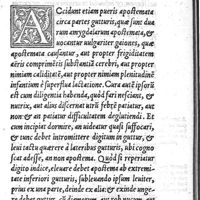 ACcidunt etiam pueris apostemata
circa partes gutturis, quæ sunt dua
rum amygdalarum apostemata, &
uocantur uulgariter gaiones, quæ
apostemata causantur, aut propter frigiditatem
aëris comprimētis substantiā cerebri, aut propter
nimiam caliditatē, aut propter nimiam plenitudinē
infantini è superflua lactatione. Cura est: ipsorū
cum diligentia habenda, quòd fari nesciunt, &
nutrix, aut alius discernat utrū febres patiatur, aut
non: & an patiatur difficultatem deglutiendi. Et
cum inceperit dormire, an uideatur quasi suffocari,
& tunc debet intromittere digitum in guttur, &
leui tactu quærere à lateribus gutturis, ubi cogno
scat adesse, an non apostema. Quòd si reperiatur
digito indice, eleuare debet apostema ab extremi-
tate inferiori gutturis, subleuando ipsum leuiter,
prius ex una parte, deinde ex alia: & exinde unge-